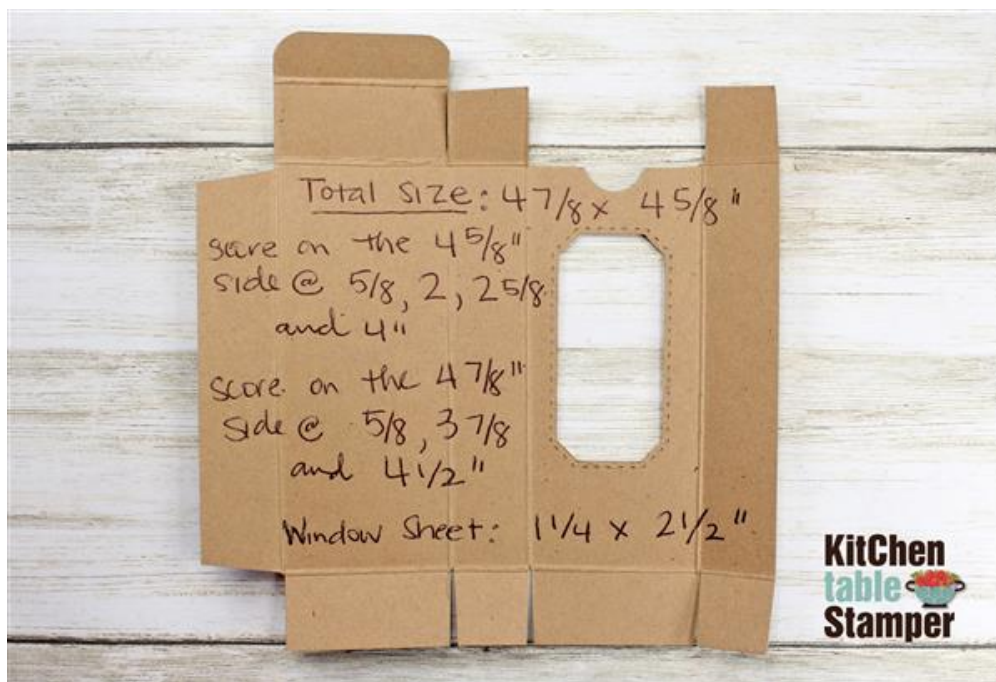 Total Size: 4 7/8 x 4 5/8"
score on the 4 5/8"
side @ 5/8, 2, 2 5/8
and 4"
score on the 4 7/8"
side @ 5/8, 3 7/8
and 4 1/2"
Window Sheet: 1 1/4 x 2 1/2"
KitChen
table
Stamper